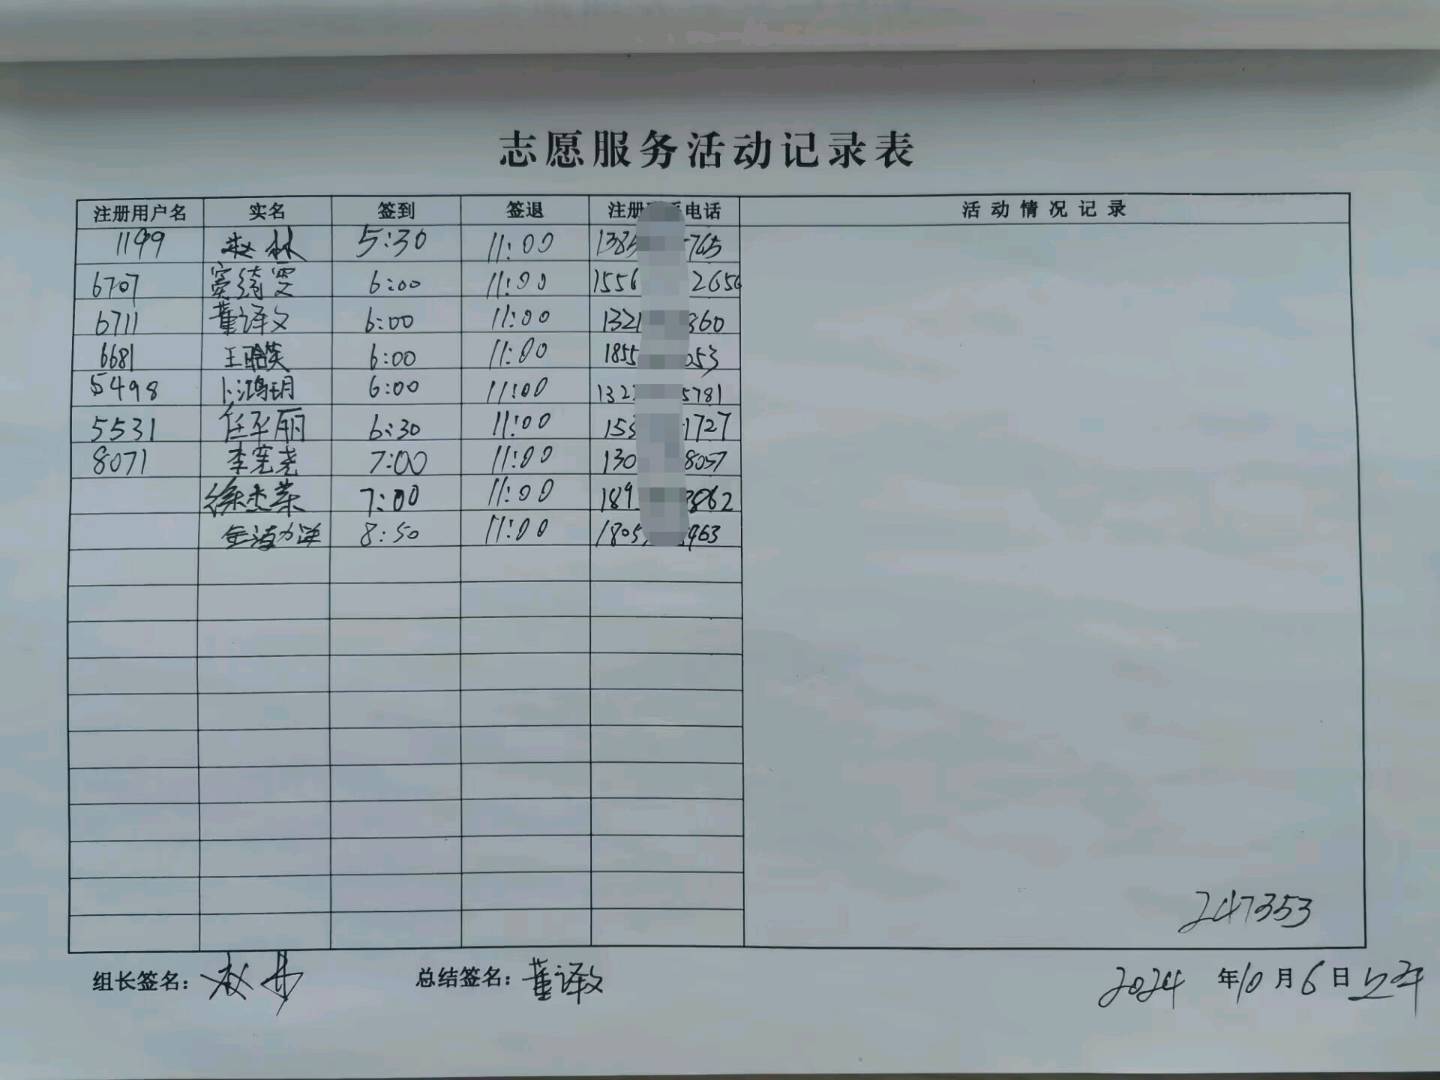 志愿服务活动记录表
注册用户名 实名 签到 签退 注册 电话 活动情况记录
1199 赵林 5:30 11:00 1385 765
6707 窦绮雯 6:00 11:00 1556 2656
6711 董译文 6:00 11:00 1321 360
6681 王晗英 6:00 11:00 1855 053
5498 卜鸿玥 6:00 11:00 132 5781
5531 任平丽 6:30 11:00 153 1727
8071 李宪尧 7:00 11:00 130 8057
徐杰荣 7:00 11:00 189 3862
8:50 11:00 1805 963
247353
组长签名: 赵 总结签名: 董译文 2024 年 10 月 6 日 上午